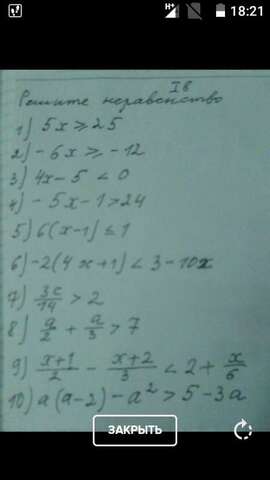 H 18:21
I в
Решите неравенство
1) 5x ≥ 25
2) -6x ≥ -12
3) 4x - 5 < 0
4) -5x - 1 > 24
5) 6(x-1) ≤ 1
6) -2(4x+1) < 3 - 10x
7) 3c/14 > 2
8) a/2 + a/3 > 7
9) x+1/2 - x+2/3 < 2 + x/6
10) a(a-2) - a² > 5 - 3a
ЗАКРЫТЬ